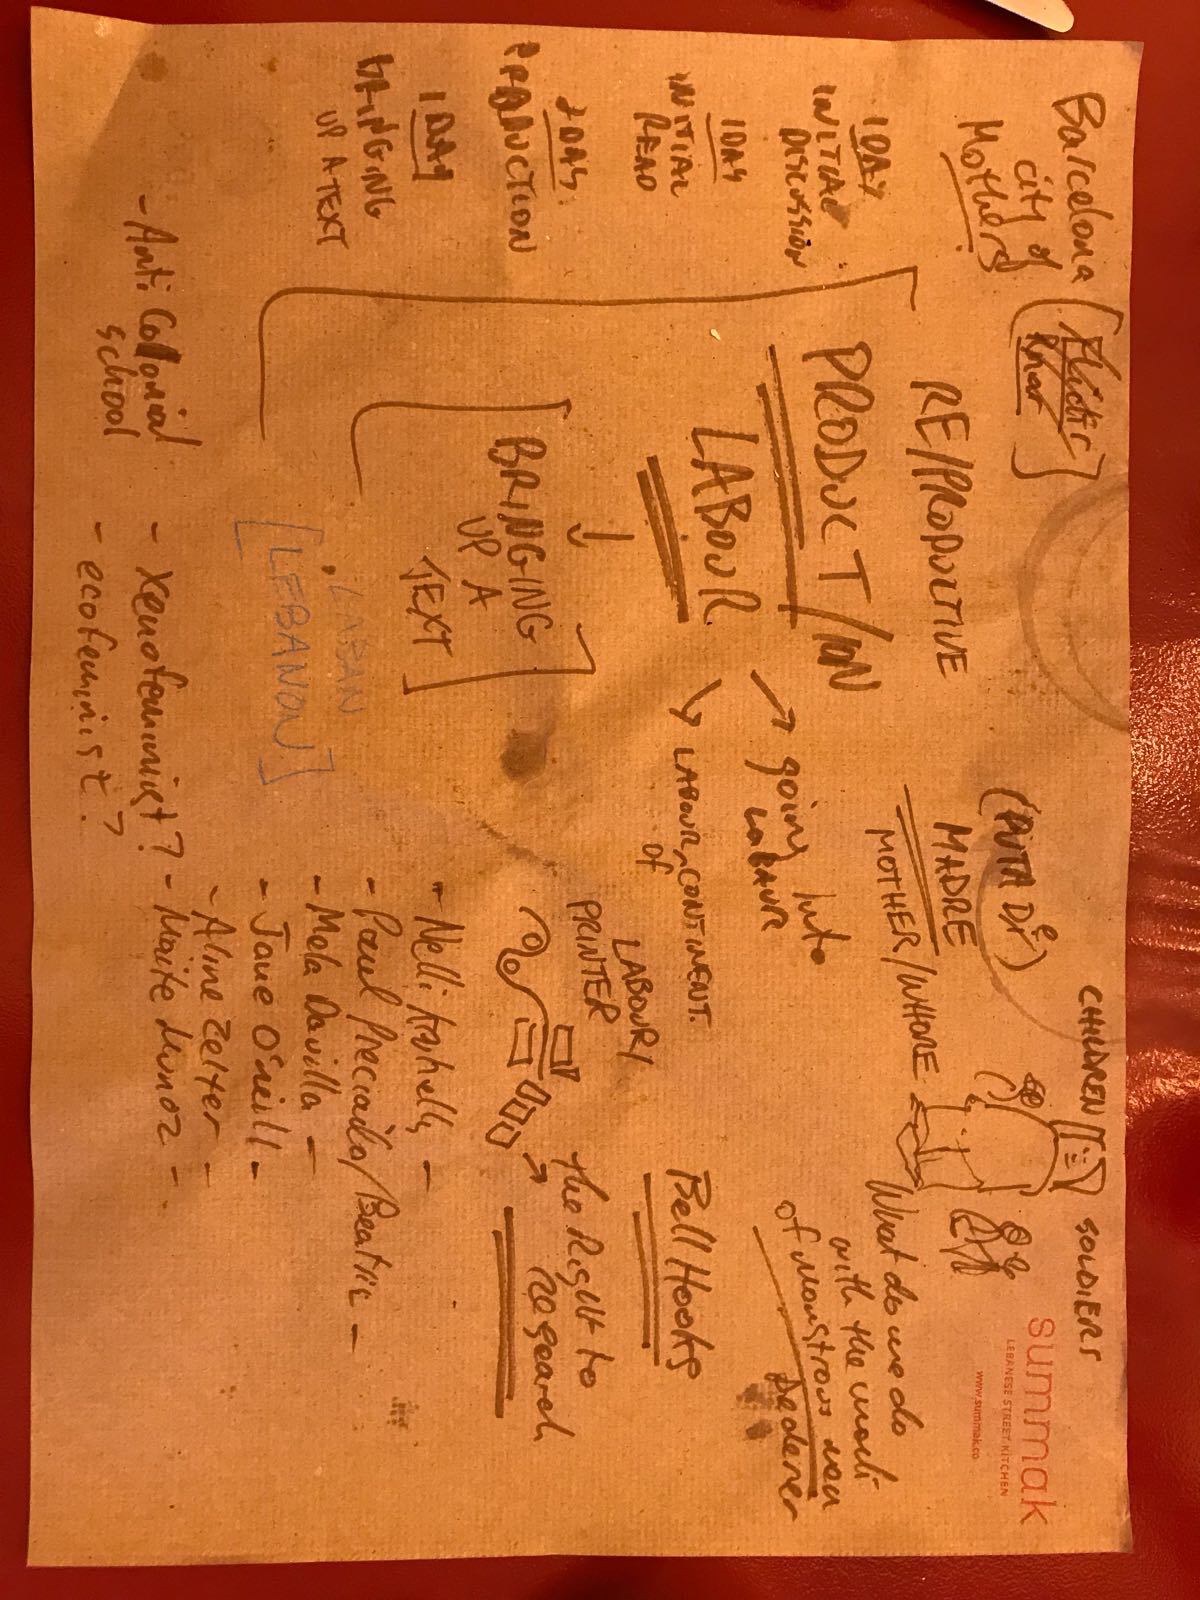 Barcelona
city of
Mothers
RE/PRODUCTIVE
PRODUCT/ION
LABOUR
BRINGING
UP A
TEXT
LABAN
[LEBANON]
1 DAY
INITIAL
DISCUSSION
1 DAY
INITIAL
READ
2 DAYS
PRODUCTION
1 DAY
BRINGING
UP A TEXT
- Anti Colonial
school
- xenofeminist?
- ecofeminist?
(PUTA De)
MADRE
MOTHER/WHORE
going into
LABOUR
LABOUR
of
CONTINENT.
LABOUR/
PRINTER
CHILDREN
SOLDIERS
summak
LEBANESE STREET KITCHEN
www.summak.co
What do we do
with the work
of monstrous men
Bell Hooks
the Right to
Research
- Paul Preciado/Beatriz -
- Jane O'neill -
- Aline Zelter -
- Maite Munoz -